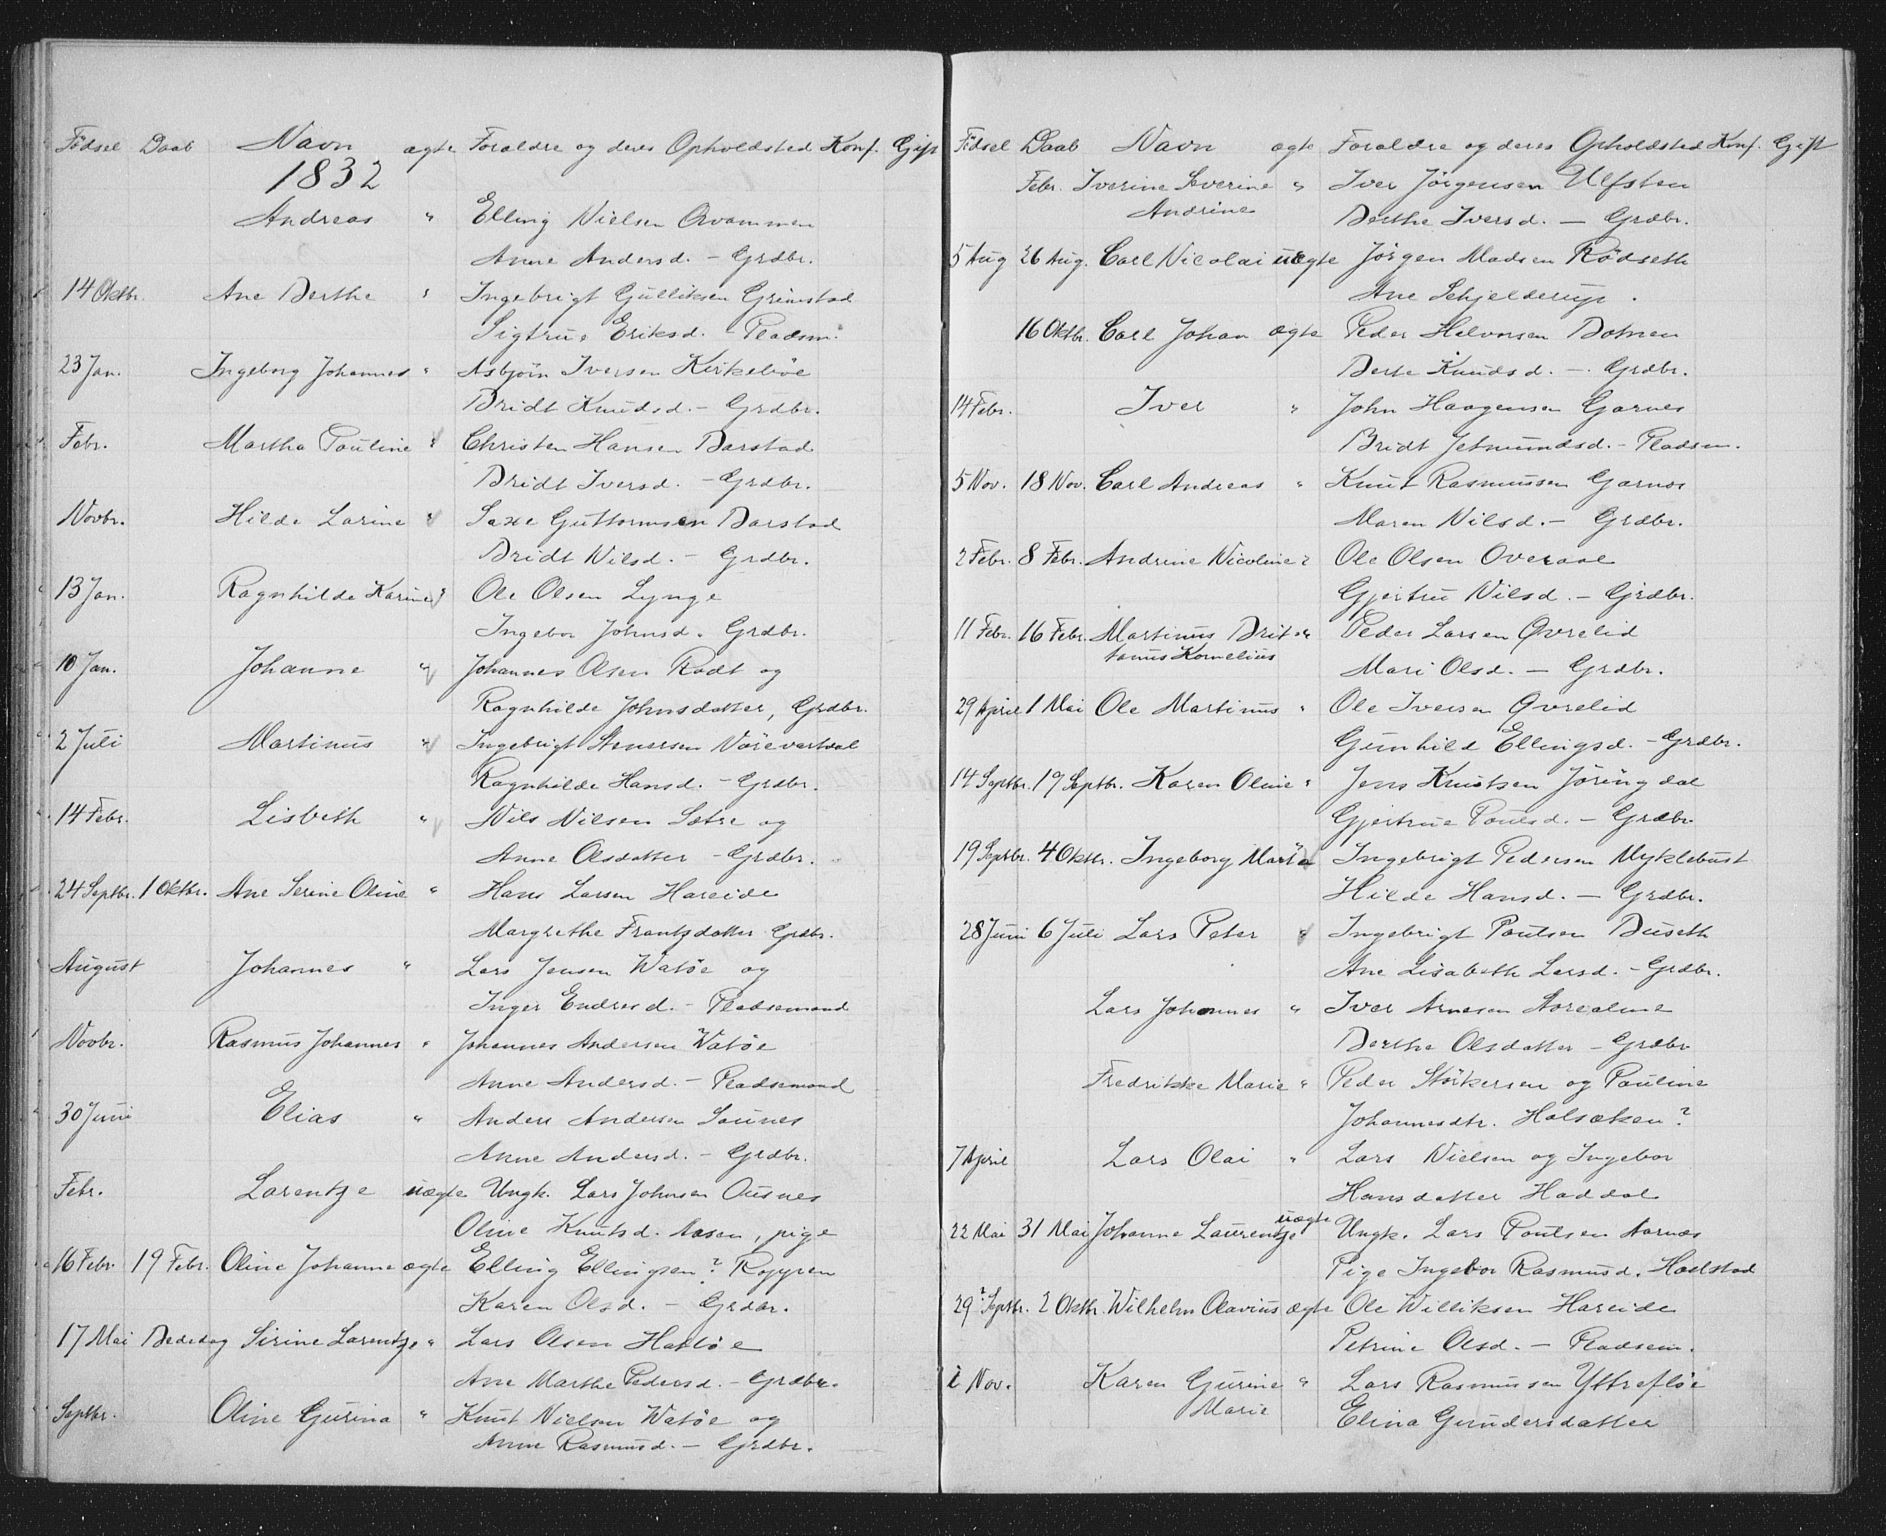 Fødsel Daab Navn ægte Forældre og deres Opholdsted Konf. Gift
1832
Andreas " Elling Nielsen Qvammen
Anne Andersd. - Grdbr.
14 Oktbr. Ane Berthe " Ingebrigt Gulliksen Grimstad
Sigtrue Eriksd. - Pladsm.
23 Jan. Ingeborg Johannes " Asbjørn Iversen Kirkebøe
Bridt Knudsd. - Grdbr.
Febr. Martha Pouline " Christen Hansen Barstad
Bridt Iversd. - Grdbr.
Novbr. Hilde Larine " Saxe Guttormsen Barstad
Bridt Nilsd. - Grdbr.
13 Jan. Ragnhilde Karine " Ole Olsen Lynge
Ingebor Johnsd. Grdbr.
10 Jan. Johanne " Johannes Olsen Rødt og
Ragnhilde Johnsdatter, Grdbr.
2 Juli Martinus " Ingebrigt
Ragnhilde Hansd. - Grdbr.
14 Febr. Lisbeth " Nils Nilsen Sætre og
Anne Olsdatter - Grdbr.
24 Septbr. 1 Oktbr. Ane Serine Oline " Hans Larsen Hareide
Margrethe Frantzdatter Grdbr.
August Johannes " Lars Jensen Watøe og
Inger Endresd. - Pladsemand
Novbr. Rasmus Johannes " Johannes Andersen Watøe
Anne Andersd. - Pladsemand
30 Juni Elias " Anders Andersen Sounes
Anne Andersd. - Grdbr.
Febr. Larentze uægte Ungk. Lars Johnsen Ousnes
Oline Knutsd. Aasen, pige
16 Febr. 19 Febr. Oline Johanne ægte Elling Ellingsen?
Karen Olsd. - Grdbr.
17 Mai Bededag Sirine Larentze " Lars Olsen Hatløe
Ane Marthe Pedersd. - Grdbr.
Septbr. Oline Gurina " Knut Nielsen Watøe og
Anne Rasmusd. - Grdbr.
Fødsel Daab Navn ægte Forældre og deres Opholdsted Konf. Gift
Febr. Iverine Severine " Iver Jørgensen Ulfsten
Andrine Berthe Iversd. - Grdbr.
5 Aug 26 Aug. Carl Nicolai uægte Jørgen Madsen Rødseth
Ane Schjelderup.
16 Oktbr. Carl Johan ægte Peder Halvorsen Botnen
Berte Knudsd. - Grdbr.
14 Febr. Iver " John Haagensen Garnes
Bridt Jetmundsd. - Pladsem.
5 Nov. 18 Nov. Carl Andreas " Knut Rasmussen Garnes
Maren Nilsd. - Grdbr.
2 Febr. 8 Febr. Andrine Nicoline " Ole Olsen Overaae
Gjertru Nilsd. - Grdbr.
11 Febr. 16 Febr. Martinus Brit- " Peder Larsen Øvrelid
tanus Kornelius Mari Olsd. - Grdbr.
29 April 1 Mai Ole Martinus " Ole Iversen Øvrelid
Gunhild Ellingsd. - Grdbr.
14 Septbr. 19 Septbr. Karen Oline " Jens Knutsen Jøringdal
Gjertrue Poulsd. - Grdbr.
19 Septbr. 4 Oktbr. Ingeborg Marta Ingebrigt Pedersen Myklebust
Hilde Hansd. - Grdbr.
28 Juni 6 Juli Lars Peter " Ingebrigt Poulsen Buseth
Ane Lisabeth Larsd. - Grdbr.
Lars Johannes " Iver Arnesen
Berthe Olsdatter - Grdbr
Fredrikke Marie " Peder Størkersen og Pauline
Johannesdtr. Holsæken?
7 April Lars Olai " Lars Nielsen og Ingebor
Hansdatter Haddal
22 Mai 31 Mai Johanne Laurentze uægte Ungk. Lars Poulsen Aarnæs
Pige Ingebor Rasmusd. Hadstad
29? Septbr. 2 Oktbr. Wilhelm Olavius ægte Ole Williksen Hareide
Petrine Olsd. - Pladsem.
i Nov. Karen Gurine " Lars Rasmussen Yttrefløe
Marie Elina Gundersdatter